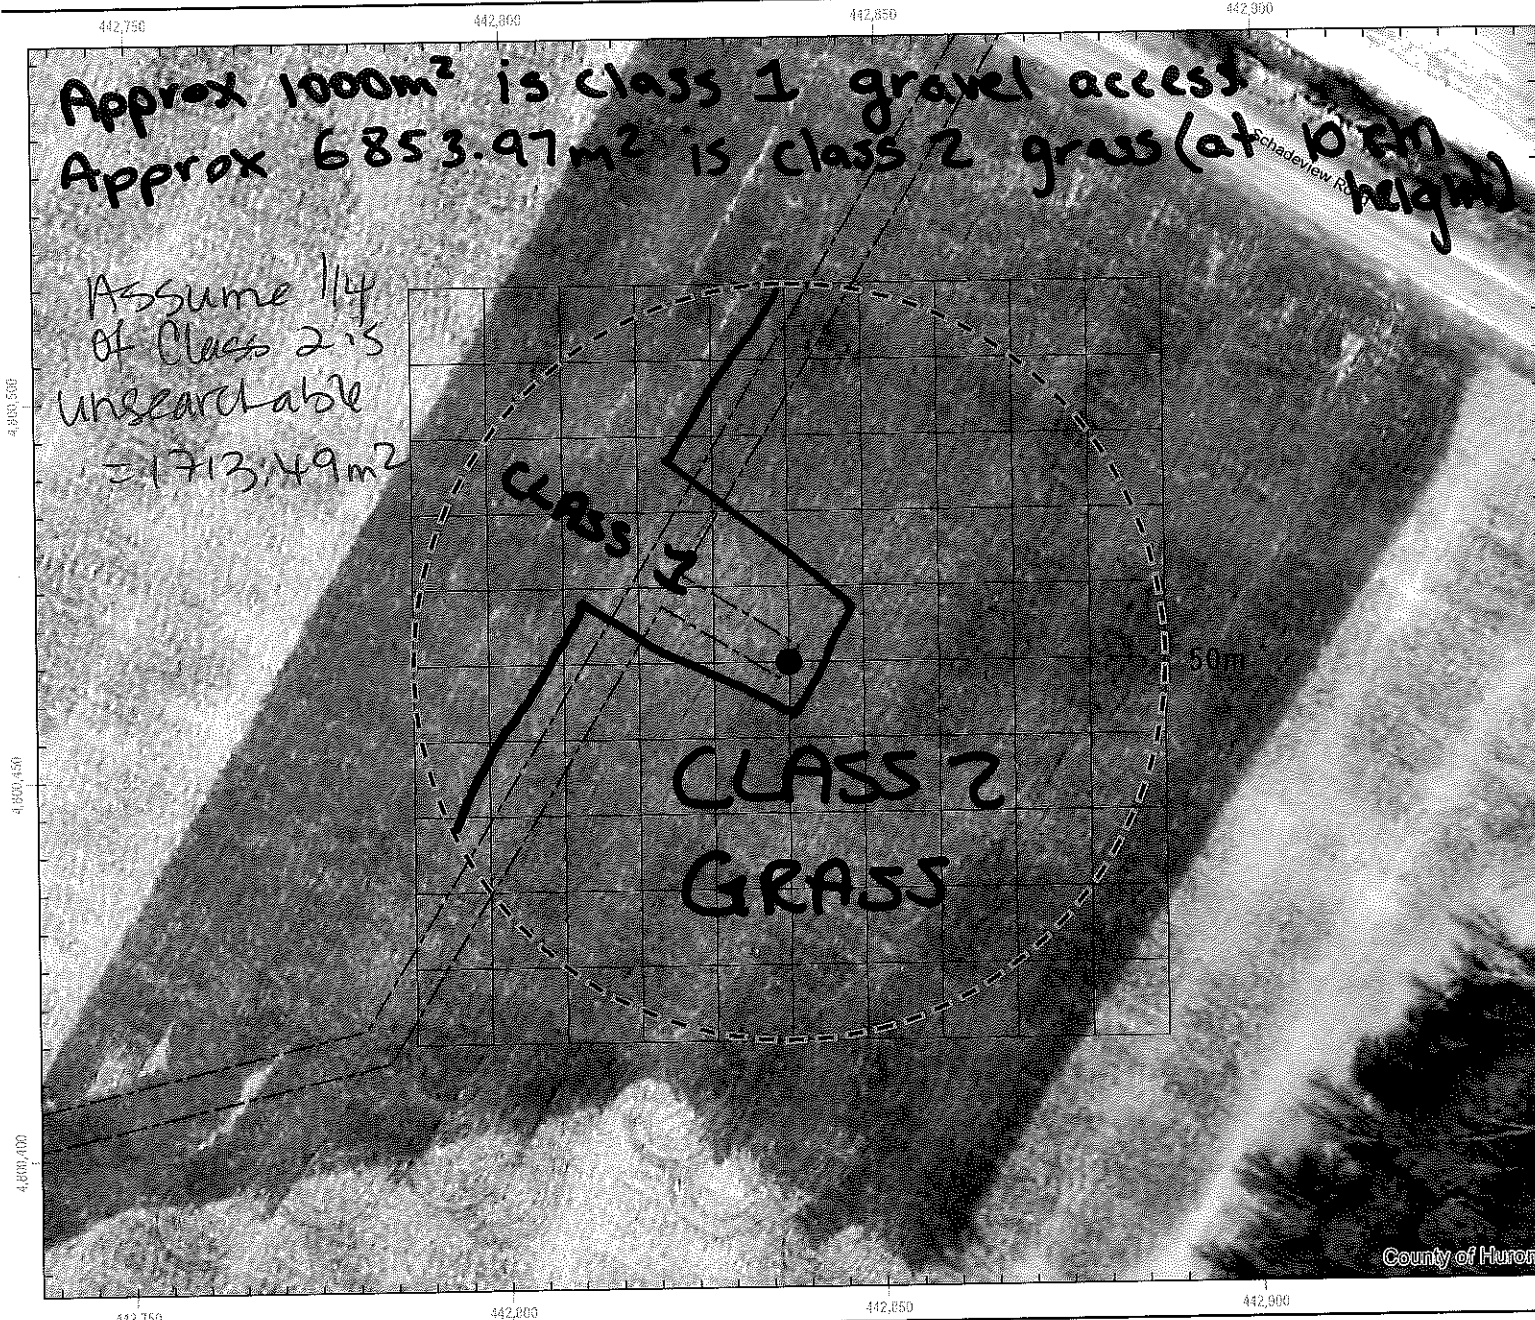 442,750 442,800 442,850 442,900
Approx 1000m² is class 1 gravel access.
Approx 6853.97m² is class 2 grass (at 10cm
height)
Schadeview Road
Assume 1/4
of Class 2 is
unsearchable
= 1713.49m²
4,800,500
CLASS 1
50m
4,800,450
CLASS 2
GRASS
4,800,400
County of Huron
442,750 442,800 442,850 442,900